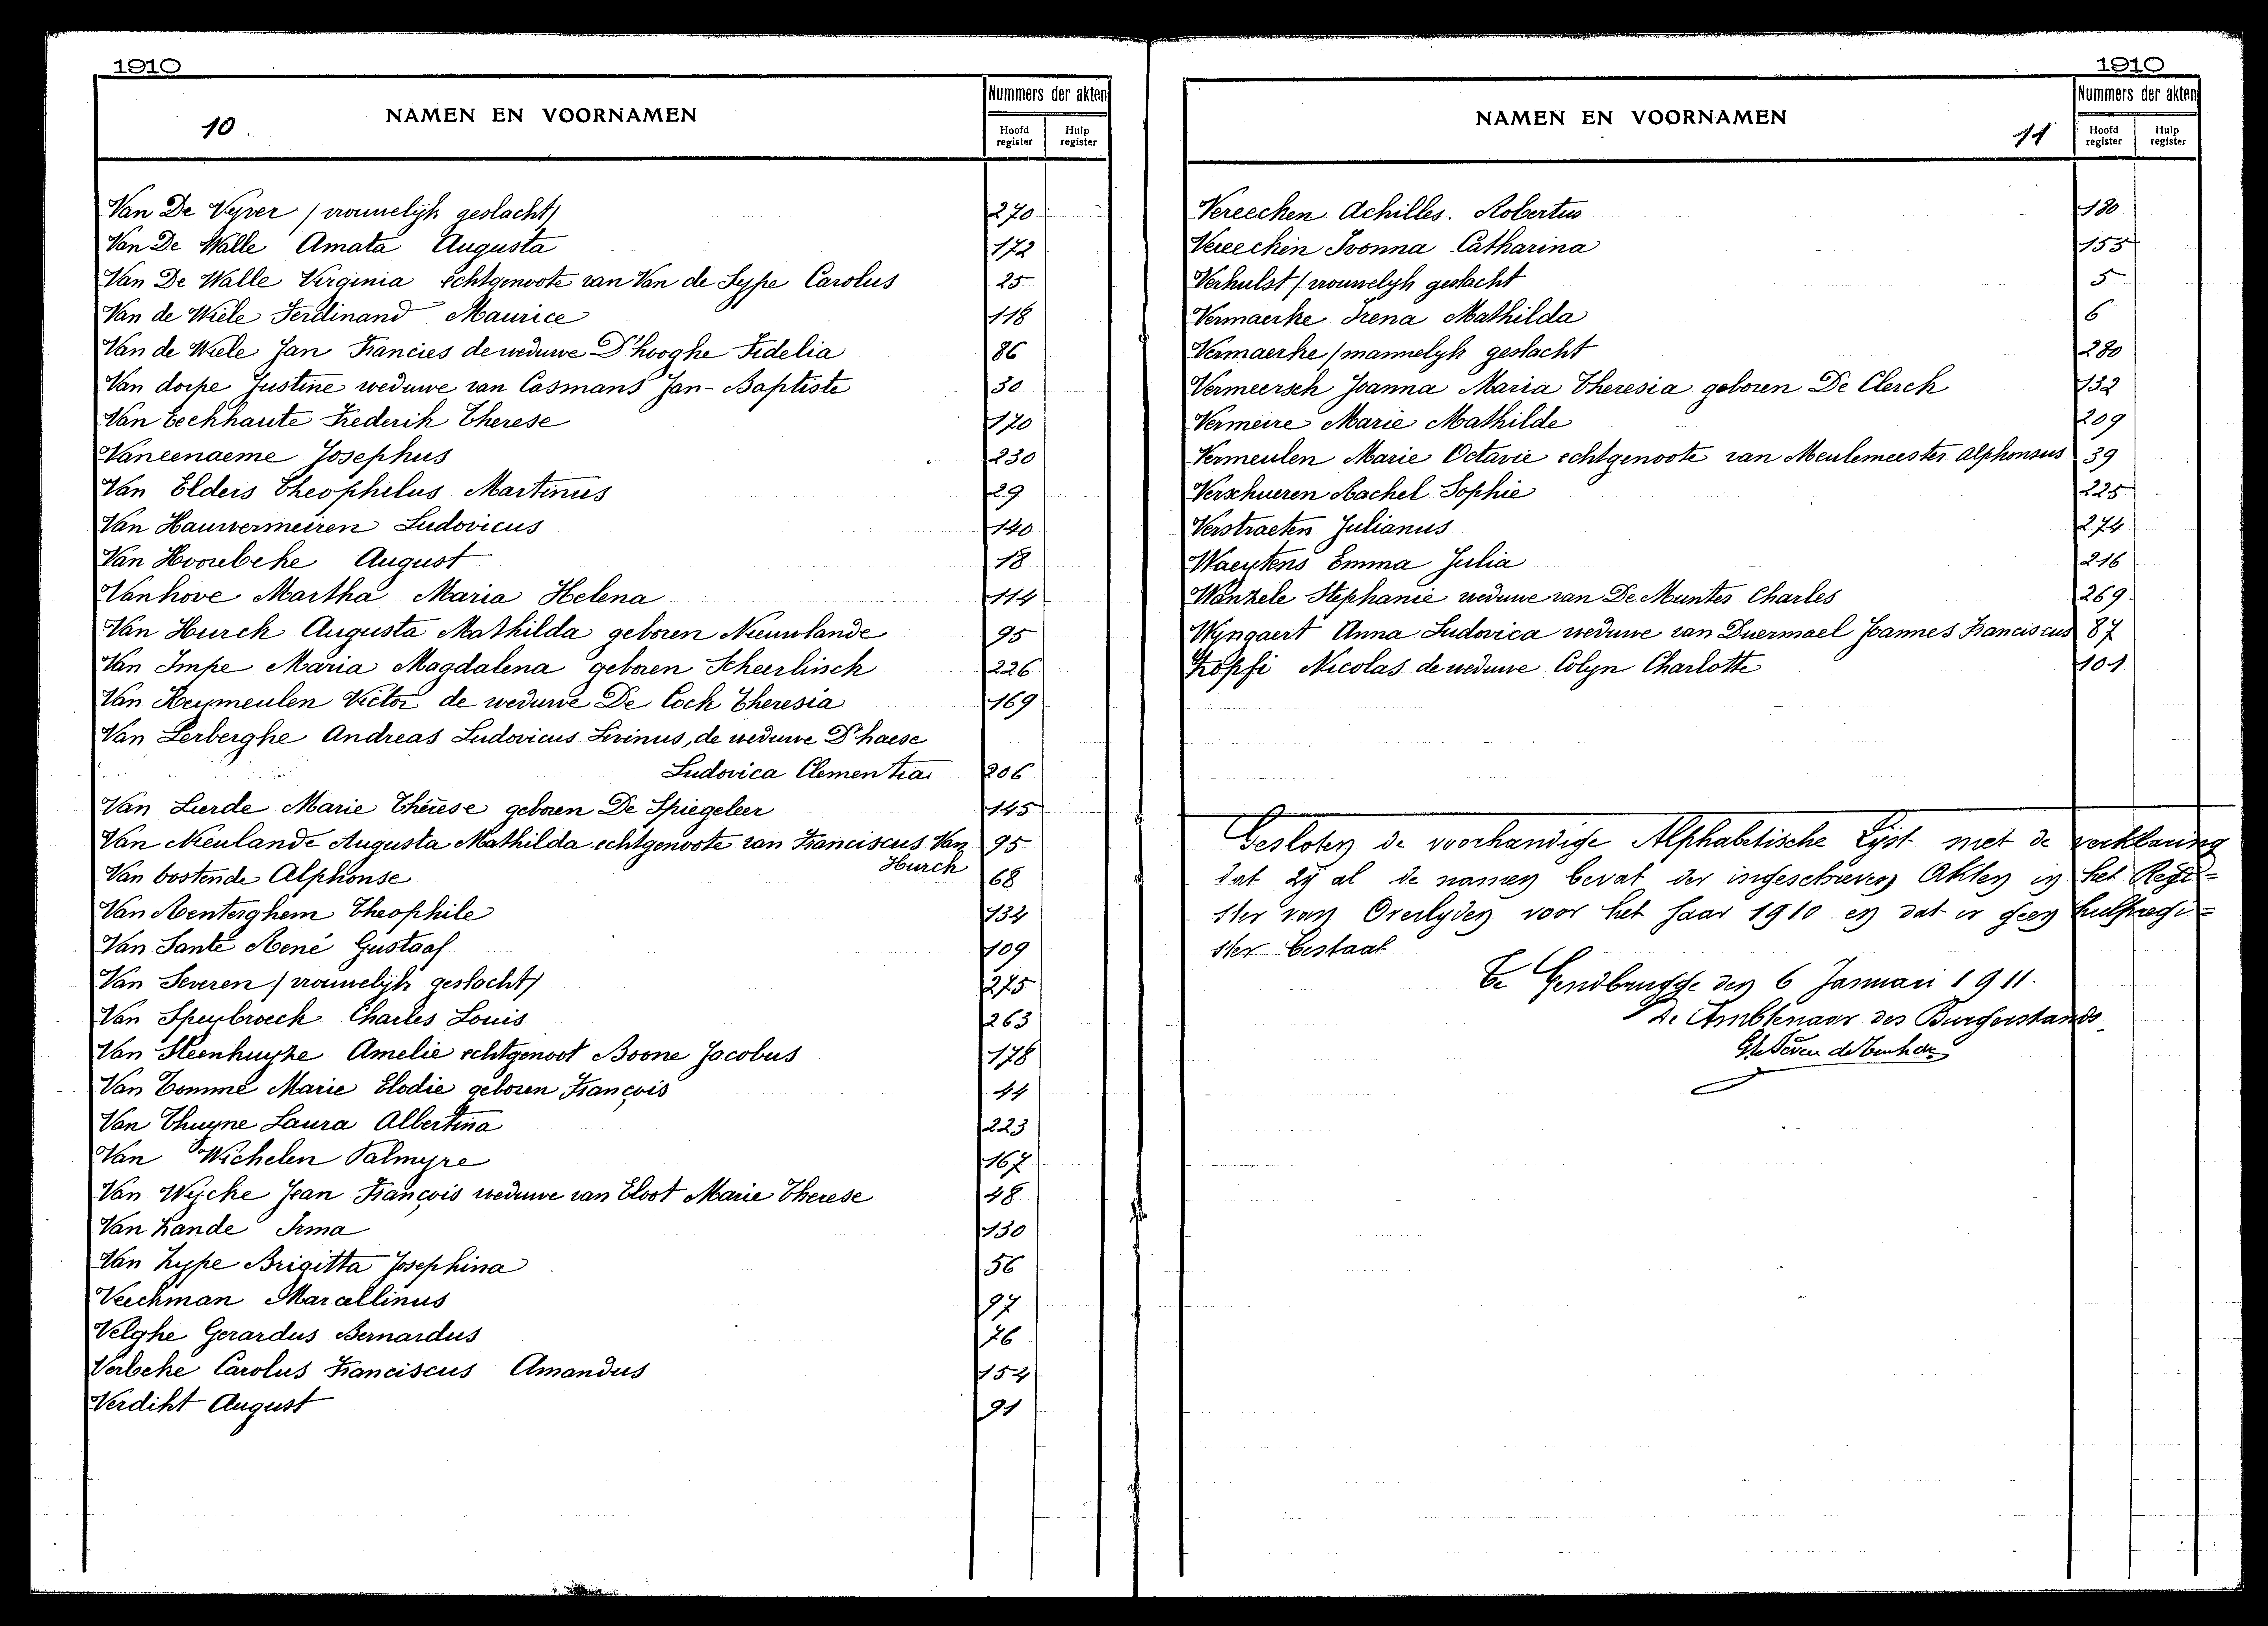 1910
10.
NAMEN EN VOORNAMEN
Nummers der akten
Hoofd register
Hulp register
Van De Vyver / vrouwelijk geslacht/ 270
Van De Walle Amata Augusta 172
Van De Walle Virginia echtgenoote van Van de Sype Carolus 25
Van de Wiele Ferdinand Maurice 118
Van de Wiele Jan Francies de weduwe D'hooghe Fidelia 86
Van dorpe Justine weduwe van Casmans Jan-Baptiste 30
Van Eeckhaute Frederik Therese 170
Vaneenaeme Josephus 230
Van Elders Theophilus Martinus 29
Van Hauwermeiren Ludovicus 140
Van Hoorebeke August 18
Vanhove Martha Maria Helena 114
Van Hurck Augusta Mathilda geboren Nieuwlande 95
Van Impe Maria Magdalena geboren Scheerlinck 226
Van Keymeulen Victor de weduwe De Cock Theresia 169
Van Lerberghe Andreas Ludovicus Livinus, de weduwe D'haese
Ludovica Clementia 206
Van Lierde Marie Thérèse geboren De Spiegeleer 145
Van Nieulande Augusta Mathilda echtgenoote van Franciscus Van 95
Hurck
Van Oostende Alphonse 68
Van Renterghem Theophile 134
Van Sante René Gustaaf 109
Van Severen / vrouwelijk geslacht/ 275
Van Speybroeck Charles Louis 263
Van Steenhuyze Amelie echtgenoot Boone Jacobus 178
Van Tomme Marie Elodie geboren François 44
Van Thuyne Laura Albertina 223
Van Wichelen Palmyre 167
Van Wycke Jean François weduwe van Eloot Marie Therese 48
Van Zande Irma 130
Van Zype Brigitta Josephina 56
Veeckman Marcellinus 97
Velghe Gerardus Bernardus 76
Verbeke Carolus Franciscus Amandus 154
Verdikt August 91
1910
NAMEN EN VOORNAMEN
11
Nummers der akten
Hoofd register
Hulp register
Vereecken Achilles. Robertus 180
Vereecken Ivonna Catharina 155
Verhulst / vrouwelyk geslacht 5
Vermaerke Irena Mathilda 6
Vermaerke / mannelyk geslacht 280
Vermeersch Joanna Maria Theresia geboren De Clerck 132
Vermeire Marie Mathilde 209
Vermeulen Marie Octavie echtgenoote van Meulemeester Alphonsus 39
Verschueren Rachel Sophie 225
Verstraeten Julianus 274
Waeytens Emma Julia 216
Wanzele Stephanie weduwe van De Munter Charles 269
Wyngaert Anna Ludovica weduwe van Duermael Joannes Franciscus 87
Zopfi Nicolas de weduwe Colyn Charlotte 101
Gesloten de voorhandige Alphabetische Lijst met de verklaring
dat zij al de namen bevat der ingeschreven Akten in het Regi=
ster van Overlyden voor het Jaar 1910 en dat er geen hulpregi=
ster bestaat
Te Gendbrugge den 6 Januari 1911.
De Ambtenaar des Burgerstands